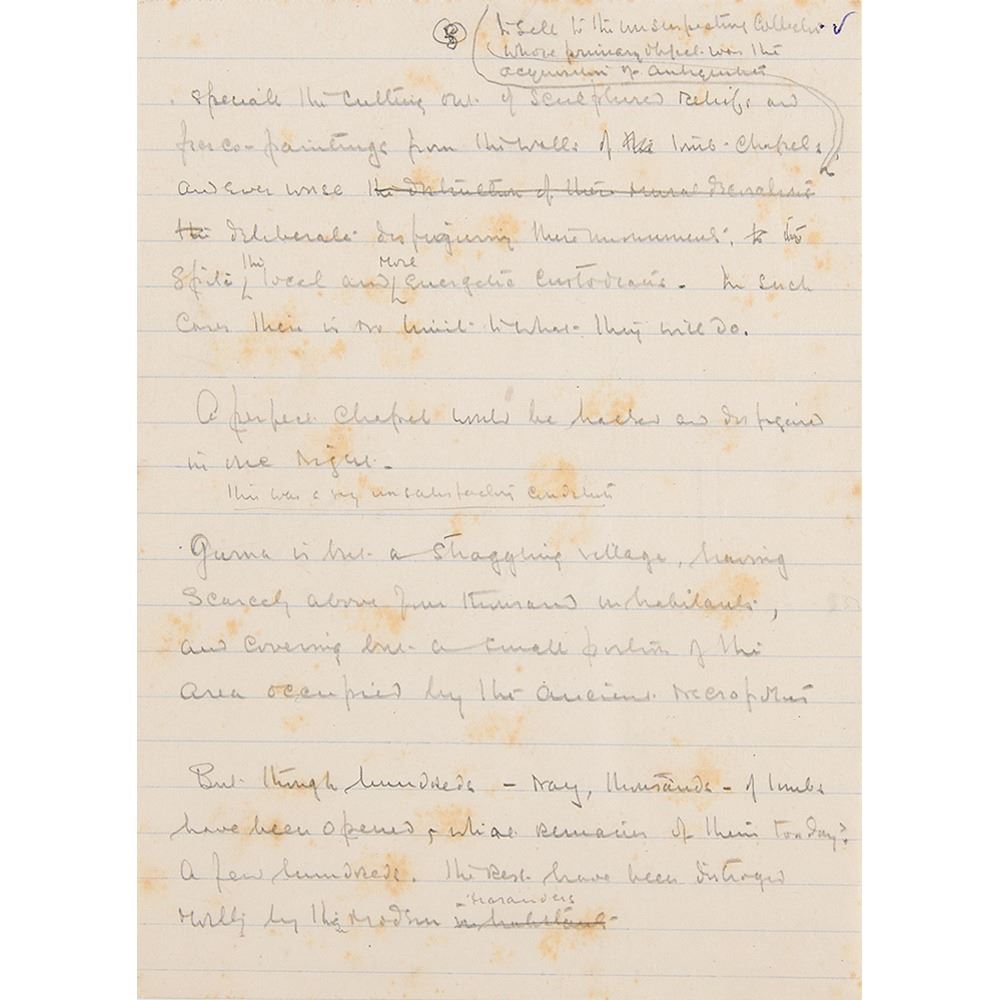 8
to sell to the unsuspecting Collector
whose primary object was the
acquisition of antiquities
specially the cutting out of sculptured reliefs and
fresco-paintings from the walls of the tomb-chapels,
and even worse the destruction of these mural decorations
the deliberate disfiguring these monuments, to
spite the local and more energetic custodians. In such
cases there is no limit to what they will do.
A perfect chapel would be hacked and disfigured
in one night.
This was a very unsatisfactory condition
Gurna is but a straggling village, having
scarcely above four thousand inhabitants,
and covering but a small portion of the
area occupied by the ancient necropolis
But though hundreds - nay, thousands - of tombs
have been opened, what remains of them today?
A few hundreds. The rest have been destroyed
mostly by the modern inhabitants
marauders